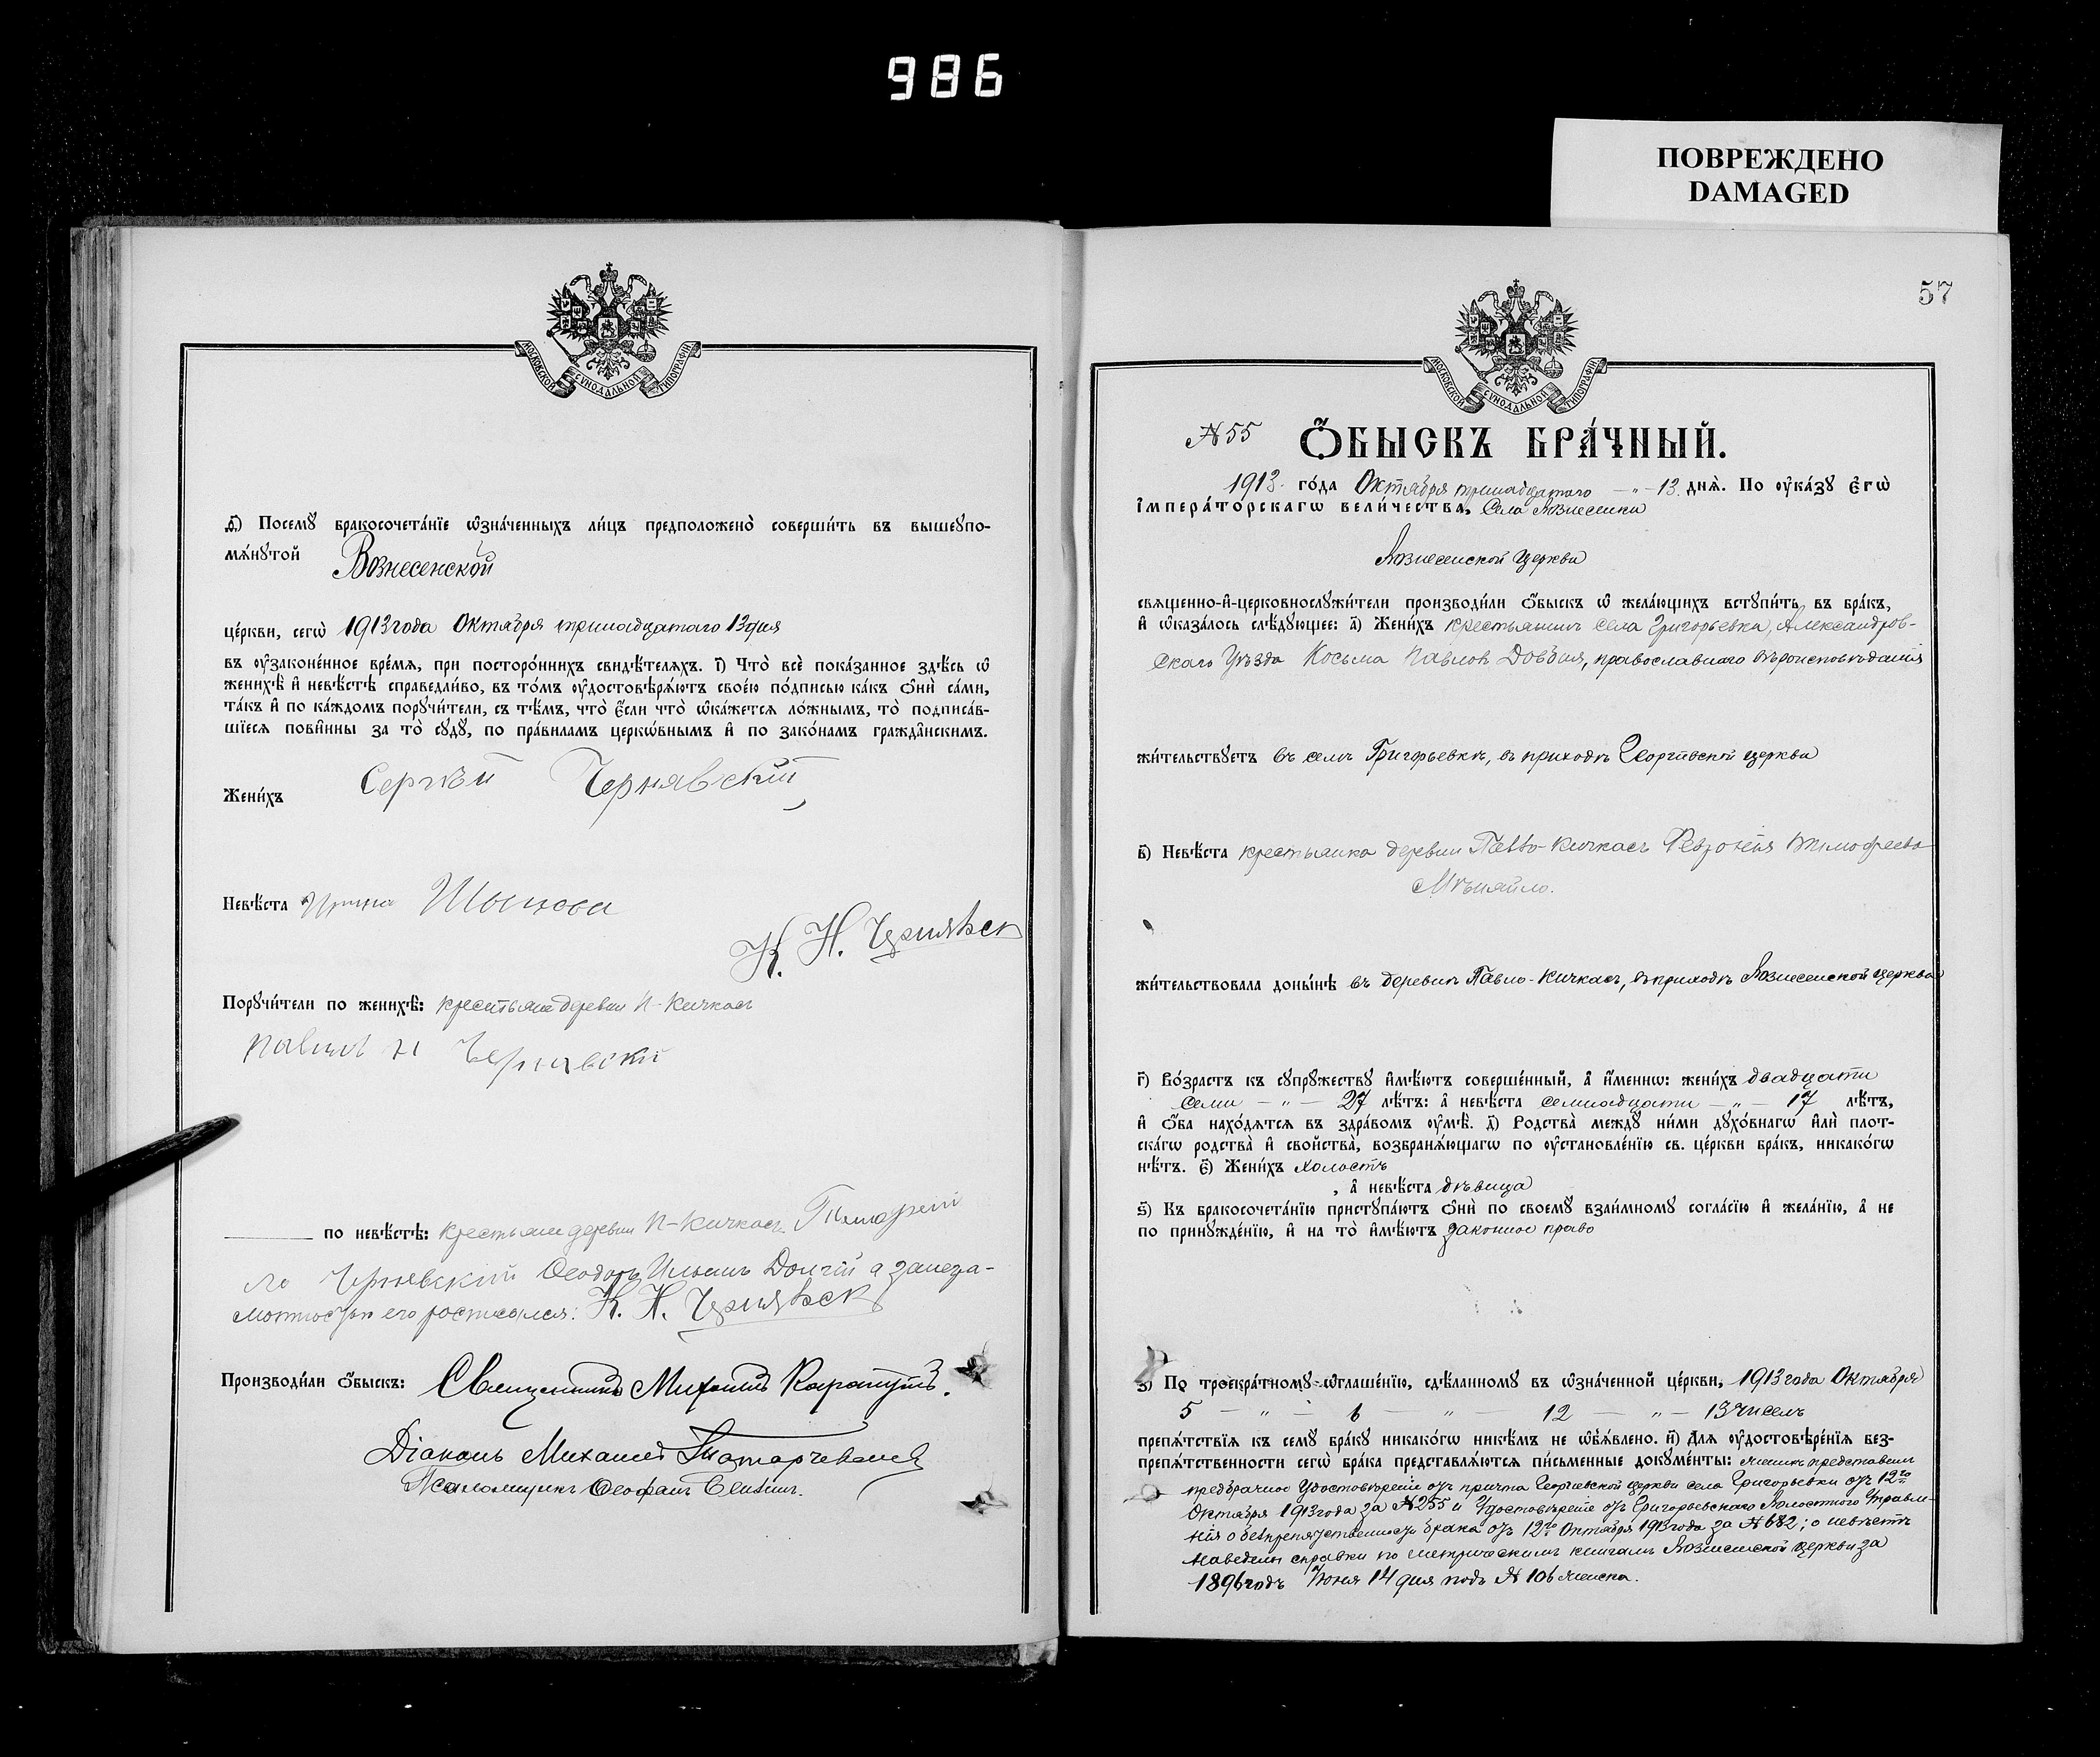 986
ПОВРЕЖДЕНО
DAMAGED
МОСКОВСКОЙ СУНОДАЛЬНОЙ ТИПОГРАФІИ
Ѳ҃) Посемꙋ бракосочета́нїе ѡ҆зна́ченныхъ ли́цъ предположено̀ соверши́ть въ вышеꙋпо-
мѧ́нꙋтой Вознесенской
це́ркви, сегѡ̀ 1913 года Октября тринадцатаго 13 дня
въ ᲂу҆законе́нное вре́мѧ, при посторо́ннихъ свидѣ́телѧхъ. І҃) Что̀ всѐ пока́занное здѣ́сь ѡ҆
женихѣ̀ и҆ невѣ́стѣ справедли́во, въ то́мъ ᲂу҆достовѣрѧ́ютъ свое́ю по́дписью ка́къ ѻ҆нѝ са́ми,
та́къ и҆ по ка́ждомъ порꙋчи́тели, съ тѣ́мъ, что̀ є҆́сли что̀ ѡ҆ка́жетсѧ ло́жнымъ, то̀ подписа́в-
шїесѧ пови́нны за то̀ сꙋдꙋ̀, по пра́виламъ церко́внымъ и҆ по зако́намъ гражда́нскимъ.
Жени́хъ Сергѣй Чернявскій
Невѣ́ста Ирина
К. Н. Чернявск
Порꙋчи́тели по женихѣ̀: крестьяне деревни П-Кичкасъ
Павелъ Н Чернявскій
по невѣ́стѣ: крестьяне деревни П-Кичкасъ Тимофей
Чернявскій Ѳеодоръ Ильинъ Долгій а занегра-
мотностью его росписался: К. Н. Чернявск
Производи́ли ѻ҆́быскъ: Священникъ Михаилъ Карапутъ.
Діаконъ Михаилъ
Псаломщикъ Ѳеофанъ
57
МОСКОВСКОЙ СУНОДАЛЬНОЙ ТИПОГРАФІИ
№ 55 Ѻ҆́БЫСКЪ БРА́ЧНЫЙ.
1913 го́да Октября тринадцатаго — „ — 13 днѧ̀. По ᲂу҆ка́зꙋ є҆гѡ̀
і҆мпера́торскагѡ вели́чества, Села Вознесенки
Вознесенской церкви
свѧщенно-и҆-церковнослꙋжи́тели производи́ли ѻ҆́быскъ ѡ҆ жела́ющихъ встꙋпи́ть въ бра́къ,
и҆ ѡ҆каза́лось слѣ́дꙋющее: а҃) Жени́хъ крестьянинъ села Григорьевки, Александров-
скаго Уѣзда Косьма Павловъ Довбня, православнаго вѣроисповѣданія
жи́тельствꙋетъ въ селѣ Григорьевкѣ, въ приходѣ Георгіевской церкви
в҃) Невѣ́ста крестьянка деревни Павло-Кичкасъ Февронія Тимофеева
жи́тельствовала доны́нѣ въ деревнѣ Павло-Кичкасъ, въ приходѣ Вознесенской церкви
г҃) Во́зрастъ къ сꙋпрꙋжествꙋ и҆мѣ́ютъ соверше́нный, а҆ и҆́меннѡ: жени́хъ двадцати
семи — „ — 27 лѣ́тъ: а҆ невѣ́ста семнадцати — „ — 17 лѣ́тъ,
и҆ ѻ҆́ба нахо́дѧтсѧ въ здра́вомъ ᲂу҆мѣ̀. д҃) Родства̀ междꙋ ни́ми дꙋхо́внагѡ и҆лѝ плот-
ска́гѡ родства̀ и҆ свойства̀, возбранѧ́ющагѡ по ᲂу҆становле́нїю св. це́ркви бра́къ, никако́гѡ
нѣ́тъ. є҃) Жени́хъ холостъ
, а҆ невѣ́ста дѣвица
ѕ҃) Къ бракосочета́нїю пристꙋпа́ютъ ѻ҆нѝ по своемꙋ̀ взаи́мномꙋ согла́сїю и҆ жела́нїю, а҆ не
по принꙋжде́нїю, и҆ на то̀ и҆мѣ́ютъ законное право
з҃) По троекра́тномꙋ ѡ҆глаше́нїю, сдѣ́ланномꙋ въ ѡ҆зна́ченной це́ркви, 1913 года Октября
5 — „ — 6 — „ — 12 — „ — 13 чиселъ
препѧ́тствїѧ къ семꙋ̀ бра́кꙋ никако́гѡ никѣ́мъ не ѡ҆б̾ѧ́влено. и҃) Длѧ ᲂу҆достовѣре́нїѧ без-
препѧ́тственности сегѡ̀ бра́ка представлѧ́ютсѧ пи́сьменные докꙋме́нты: женихъ представилъ
предбрачное Удостовѣреніе отъ причта Георгіевской церкви села Григорьевки отъ 12го
Октября 1913 года за № 255 и Удостовѣреніе отъ Григорьевскаго Волостного Управле-
нія о безпрепятственности брака отъ 12го Октября 1913 года за № 682; о невѣстѣ
наведены справки по метрическимъ книгамъ Вознесенской церкви за
1896 годъ Іюня 14 дня подъ № 106 женска.